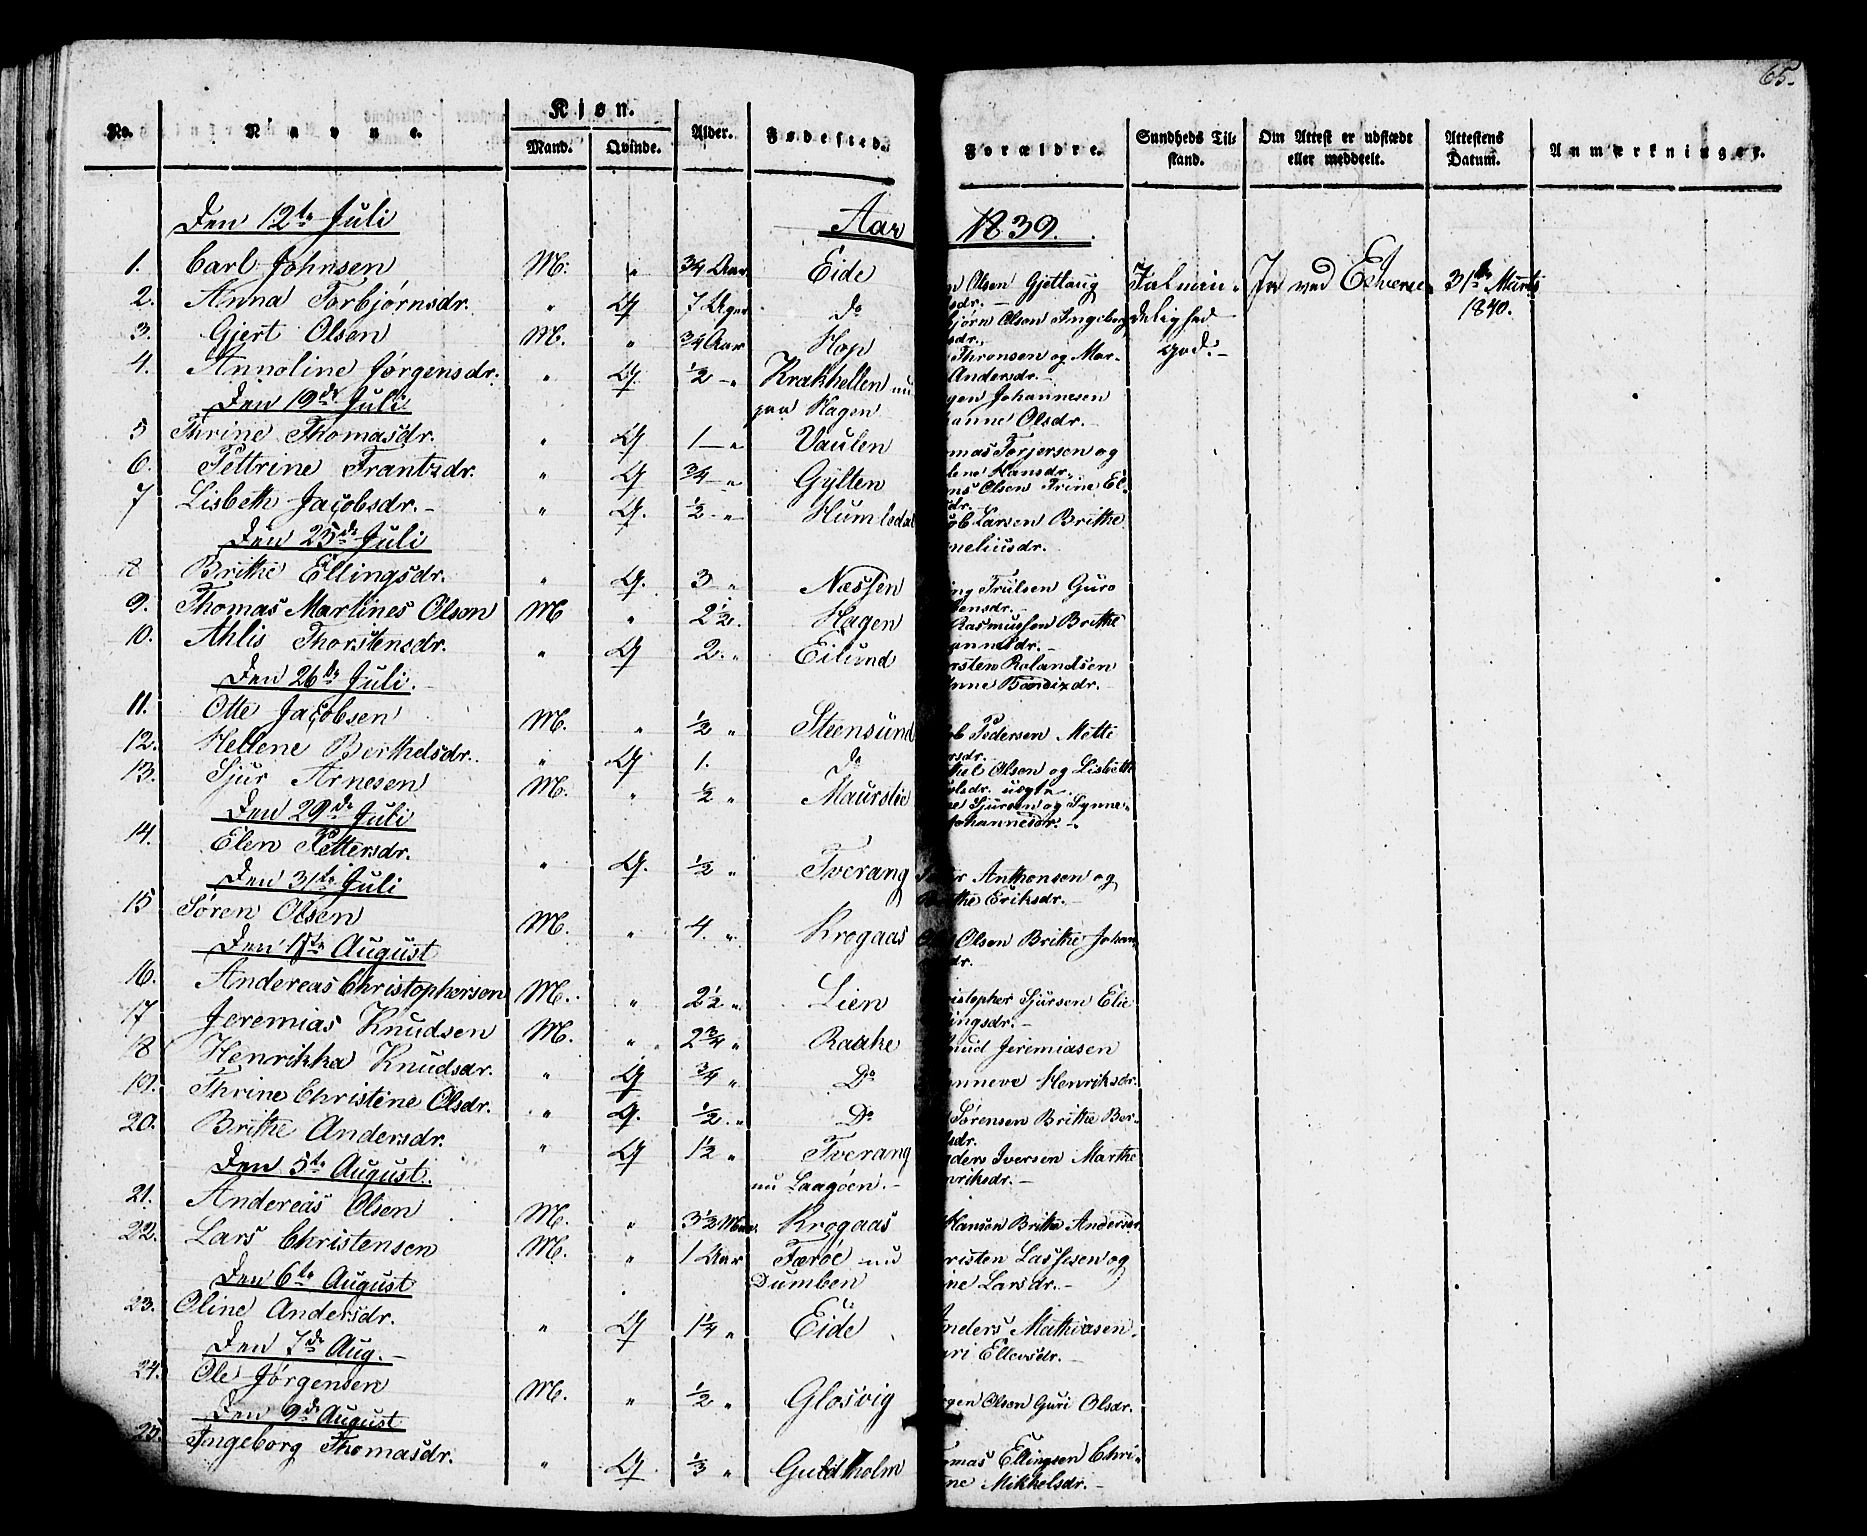 65.
No. Navne. Kjøn. Mand. Qvinde. Alder. Fødested. Forældre. Sundheds Tilstand. Om Attest er udstædt eller meddeelt. Attestens Datum. Anmærkninger.
Den 12te Juli Aar 1839.
1. Carl Johnsen M. " 3/4 Aar Eide n Olsen Gjetlaug Ja ved Eleverne 31te Marts
sdr. 1840.
2. Anna Torbjørnsdr. " Q 7 Uger do bjørn Olsen Ingeborg
sdr.
3. Gjert Olsen M. " 3/4 Aar Hop Thronsen og Mar- god.
Andersdr.
4. Annoline Jørgensdr. " Q. 1/2 - " Krakhellen nu gen Johannesen
Den 19de Juli paa Hagen anne Olsdr.
5 Thrine Thomasdr. " Q 1 - " Vaulen mas Torjersen og
lene Hansdr.
6. Pettrine Frantzdr. " Q 3/4 - " Gylten ns Olsen Trine El-
dr.
7 Lisbeth Jacobsdr. - " Q. 1/2 - " Humledal ob Larsen Brithe
Den 25de Juli neliusdr.
8 Brithe Ellingsdr. " Q. 3 " Nessen ing Trulsen Guro
ensdr.
9. Thomas Martines Olson M " 2 1/2. Hagen Rasmussen Brithe
annesdr.
10. Ahlis Thorstensdr. " Q 2. " Eilund rsten Rolandsen
Den 26de Juli. nne Bendixdr.
11. Otte Jacobsen M. " 1/2 " Steensund ob Pedersen Mette
rsdr.
12. Hellene Berthelsdr. " Q 1. do thel Olsen og Lisbethe
olsdr. uegte
13. Sjur Arnesen M. " 1/2 " Maurslie ne Sjursen og Synne-
Den 29de Juli Johannesdr.
14. Elen Pettersdr. " Q. 1/2 " Tverang Petter Anthonsen og
Den 31te Juli Brithe Eriksdr.
15 Søren Olsen M. " 4. " Krogaas Olsen Brithe Johan
Den 1ste August dr.
16. Andereas Christophersen M. " 2 1/2 " Lien ristopher Sjursen Elie
lingsdr. -
17 Jeremias Knudsen M. " 2 3/4 " Raahe nud Jeremiasen
18 Henrikka Knudsdr. " Q 3/4 " Do anneve Henriksdr.
19. Thrine Christine Olsdr. " Q. 1/2 " Do Sørensen Brithe Ber-
lsdr.
20. Brithe Andersdr. " Q 1 1/2 " Tverang nders Iversen Marthe
Den 5te August. nu Laagöen. - nriksdr. -
21. Andereas Olsen M. " 3 1/2 Mdr. Krogaas Hansen Brithe Andersdr.
22. Lars Christensen M. " 1 Aar Færöe nu risten Lassesen og
Den 6te August Dumben ine Larsdr. -
23. Oline Andersdr. " Q 1 1/4 " Eide Anders Mathiasen
Den 7de Aug. - ari Ellevsdr. -
24. Ole Jørgensen M. " 1/2 " Glosvig rgen Olsen Guri Olsdr.
Den 9de August
25. Ingeborg Thomasdr. " Q 1/3 " Guldholm omas Ellingsen Chri-
ne Mikkelsdr. -